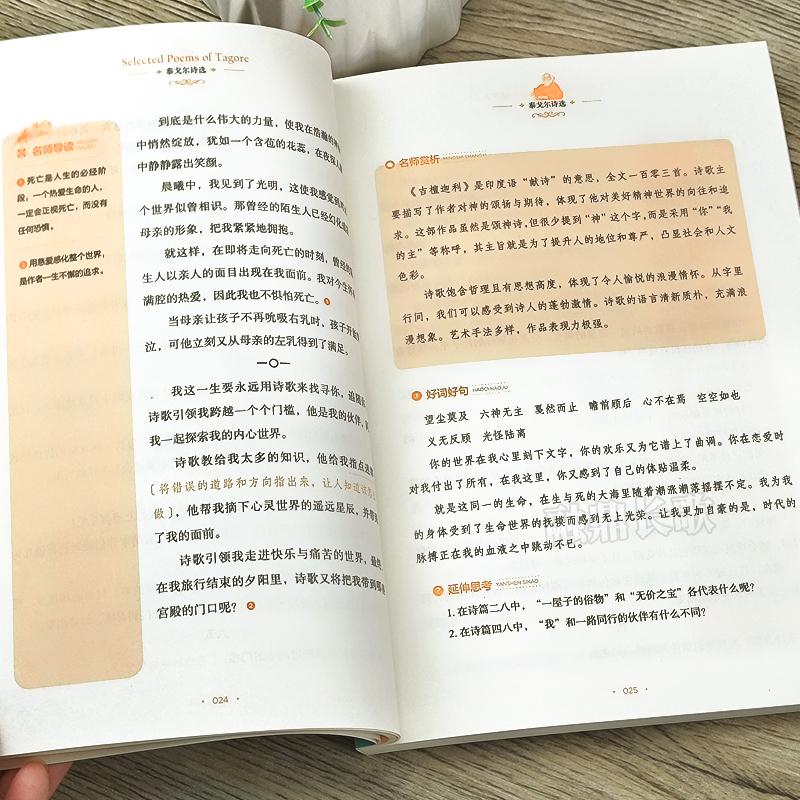 Selected Poems of Tagore
泰戈尔诗选
名师导读
1 死亡是人生的必经阶
段，一个热爱生命的人，
一定会正视死亡，而没有
任何恐惧。
2 用慈爱感化整个世界，
是作者一生不懈的追求。
到底是什么伟大的力量，使我在浩瀚的神
中悄然绽放，犹如一个含苞的花蕊，在夜深人
中静静露出笑颜。
晨曦中，我见到了光明，这使我感觉到
个世界似曾相识。那曾经的陌生人已经幻化成
母亲的形象，把我紧紧地拥抱。
就这样，在即将走向死亡的时刻，曾经的
生人以亲人的面目出现在我面前。我对今生
满腔的热爱，因此我也不惧怕死亡。1
当母亲让孩子不再吮吸右乳时，孩子开始
泣，可他立刻又从母亲的左乳得到了满足。
我这一生要永远用诗歌来找寻你，追随
诗歌引领我跨越一个个门槛，他是我的伙伴，
我一起探索我的内心世界。
诗歌教给我太多的知识，他给我指点迷
〔将错误的道路和方向指出来，让人知道该怎么
做〕，他帮我摘下心灵世界的遥远星辰，并带
了我的面前。
诗歌引领我走进快乐与痛苦的世界，最终
在我旅行结束的夕阳里，诗歌又将把我带到哪
宫殿的门口呢？2
024
泰戈尔诗选
名师赏析 MINGSHI SHANGXI
《吉檀迦利》是印度语“献诗”的意思，全文一百零三首。诗歌主
要描写了作者对神的颂扬与期待，体现了他对美好精神世界的向往和追
求。这部作品虽然是颂神诗，但很少提到“神”这个字，而是采用“你”“我
的主”等称呼，其主旨就是为了提升人的地位和尊严，凸显社会和人文
色彩。
诗歌饱含哲理且有思想高度，体现了令人愉悦的浪漫情怀。从字里
行间，我们可以感受到诗人的蓬勃激情。诗歌的语言清新质朴，充满浪
漫想象。艺术手法多样，作品表现力极强。
好词好句 HAOCI HAOJU
望尘莫及 六神无主 戛然而止 瞻前顾后 心不在焉 空空如也
义无反顾 光怪陆离
你的世界在我心里刻下文字，你的欢乐又为它谱上了曲调。你在恋爱时
对我付出了所有，在我这里，你又感到了自己的体贴温柔。
就是这同一的生命，在生与死的大海里随着潮涨潮落摇摆不定。我为我
的身体受到了生命世界的抚摸而感到无上光荣。让我更加自豪的是，时代的
脉搏正在我的血液之中跳动不已。
融鼎长歌
延伸思考 YANSHEN SIKAO
1.在诗篇二八中，“一屋子的俗物”和“无价之宝”各代表什么呢？
2.在诗篇四八中，“我”和一路同行的伙伴有什么不同？
025